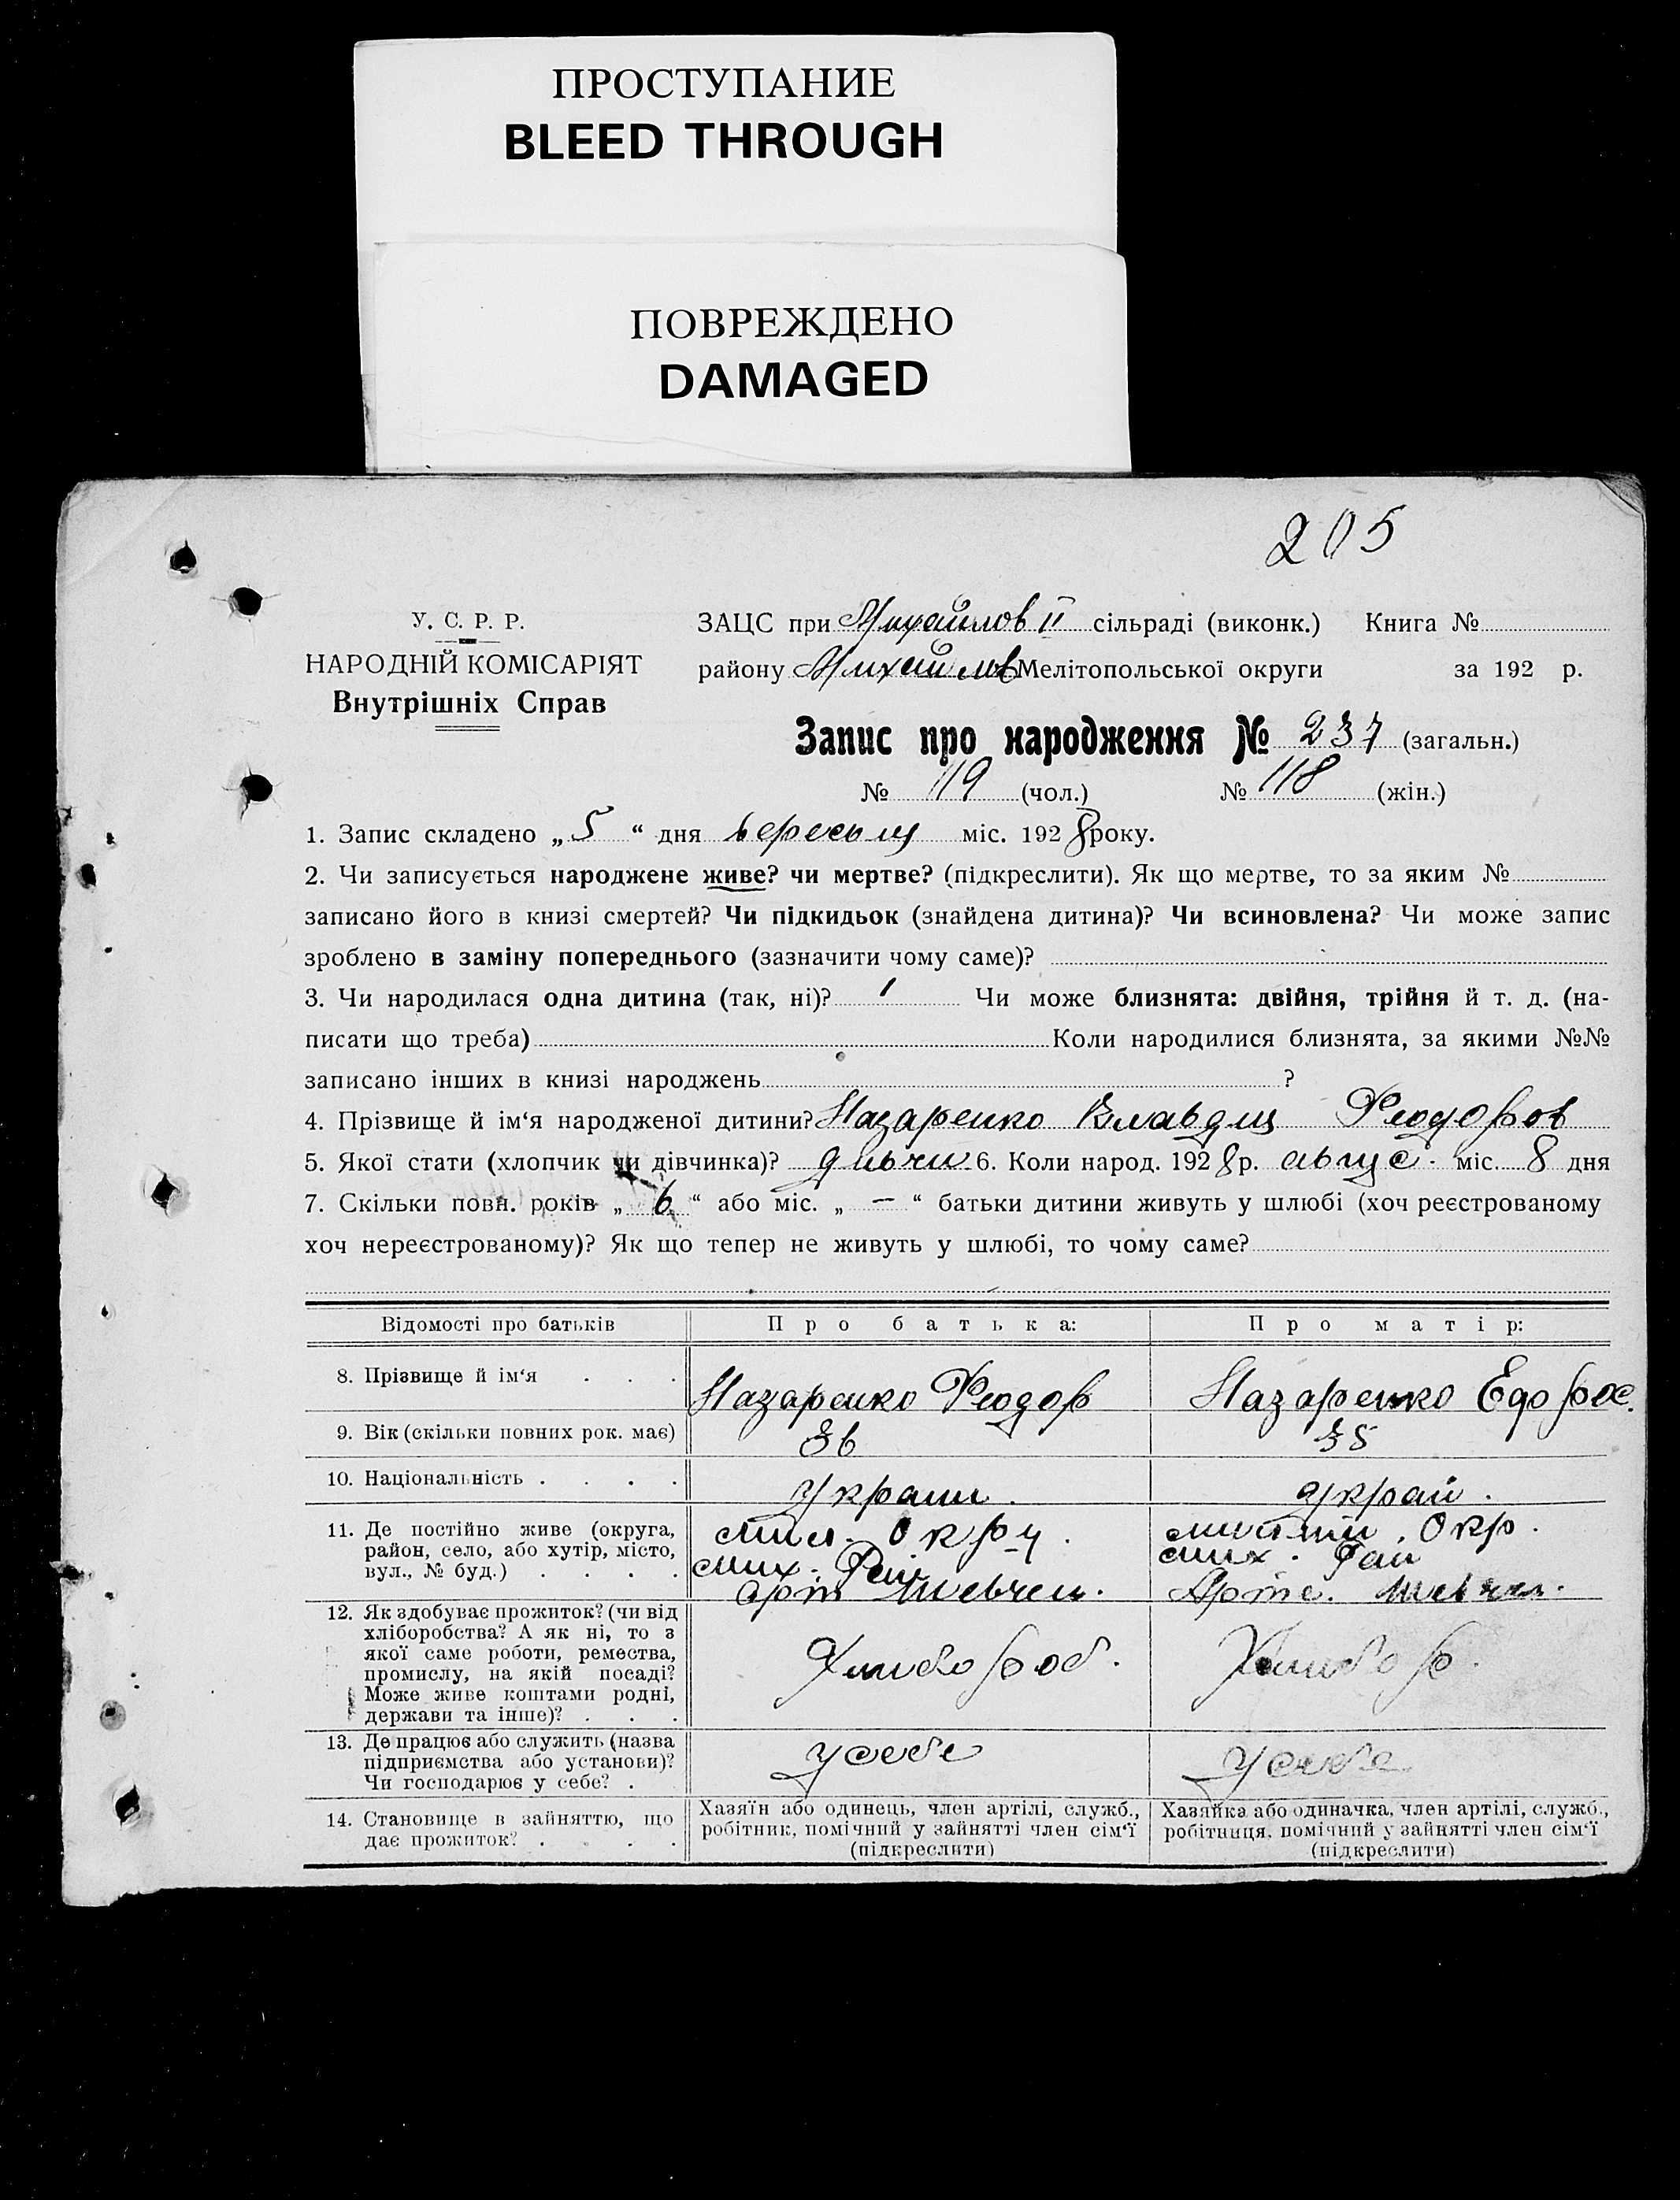 ПРОСТУПАНИЕ
BLEED THROUGH
ПОВРЕЖДЕНО
DAMAGED
205
У. С. Р. Р.
НАРОДНІЙ КОМІСАРІЯТ
Внутрішніх Справ
ЗАЦС при Михайлов II сільраді (виконк.) Книга №
району Михайлов Мелітопольської округи за 192 р.
Запис про народження № 237 (загальн.)
№ 119 (чол.) № 118 (жін.)
1. Запис складено „ 5 “ дня вересня міс. 1928 року.
2. Чи записується народжене живе? чи мертве? (підкреслити). Як що мертве, то за яким №
записано його в книзі смертей? Чи підкидьок (знайдена дитина)? Чи всиновлена? Чи може запис
зроблено в заміну попереднього (зазначити чому саме)?
3. Чи народилася одна дитина (так, ні)? 1 Чи може близнята: двійня, трійня й т. д. (на-
писати що треба) Коли народилися близнята, за якими №№
записано інших в книзі народжень ?
4. Прізвище й ім‘я народженої дитини? Назаренко Клавдия Феодоров
5. Якої стати (хлопчик чи дівчинка)? дивчи 6. Коли народ. 1928 р. авгус. міс. 8 дня
7. Скільки повн. років „ 6 “ або міс. „ — “ батьки дитини живуть у шлюбі (хоч реєстрованому
хоч нереєстрованому)? Як що тепер не живуть у шлюбі, то чому саме?
Відомості про батьків Про батька: Про матір:
8. Прізвище й ім‘я . . . Назаренко Феодор Назаренко Ефрос.
9. Вік (скільки повних рок. має) 36 35
10. Національність . . . . Украин. Украй.
11. Де постійно живе (округа,
район, село, або хутір, місто,
вул., № буд.) . . . .
Мел. Окру.
Мих. Рай
Арт Шевчен.
Окр.
Мих. Рай
Арте. Шевчен.
12. Як здобуває прожиток? (чи від
хліборобства? А як ні, то з
якої саме роботи, ремества,
промислу, на якій посаді?
Може живе коштами родні,
держави та інше)? . . .
Хлибороб. Хлибор.
13. Де працює або служить (назва
підприємства або установи)?
Чи господарює у себе? .
У себе У себе
14. Становище в зайняттю, що
дає прожиток? . . . .
Хазяїн або одинець, член артілі, служб.,
робітник, помічний у зайнятті член сім‘ї
(підкреслити)
Хазяйка або одиначка, член артілі, служб.,
робітниця, помічний у зайнятті член сім‘ї
(підкреслити)